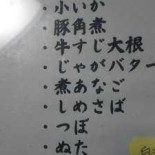 ・小いか
・豚角煮
・牛すじ大根
・じゃがバター
・煮あなご
・しめさば
・つぼ
・ぬた